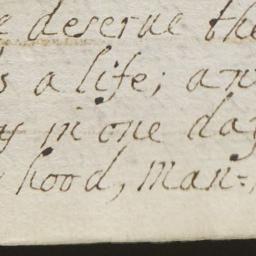 deserue the
a life; an
in one day
hood, man=